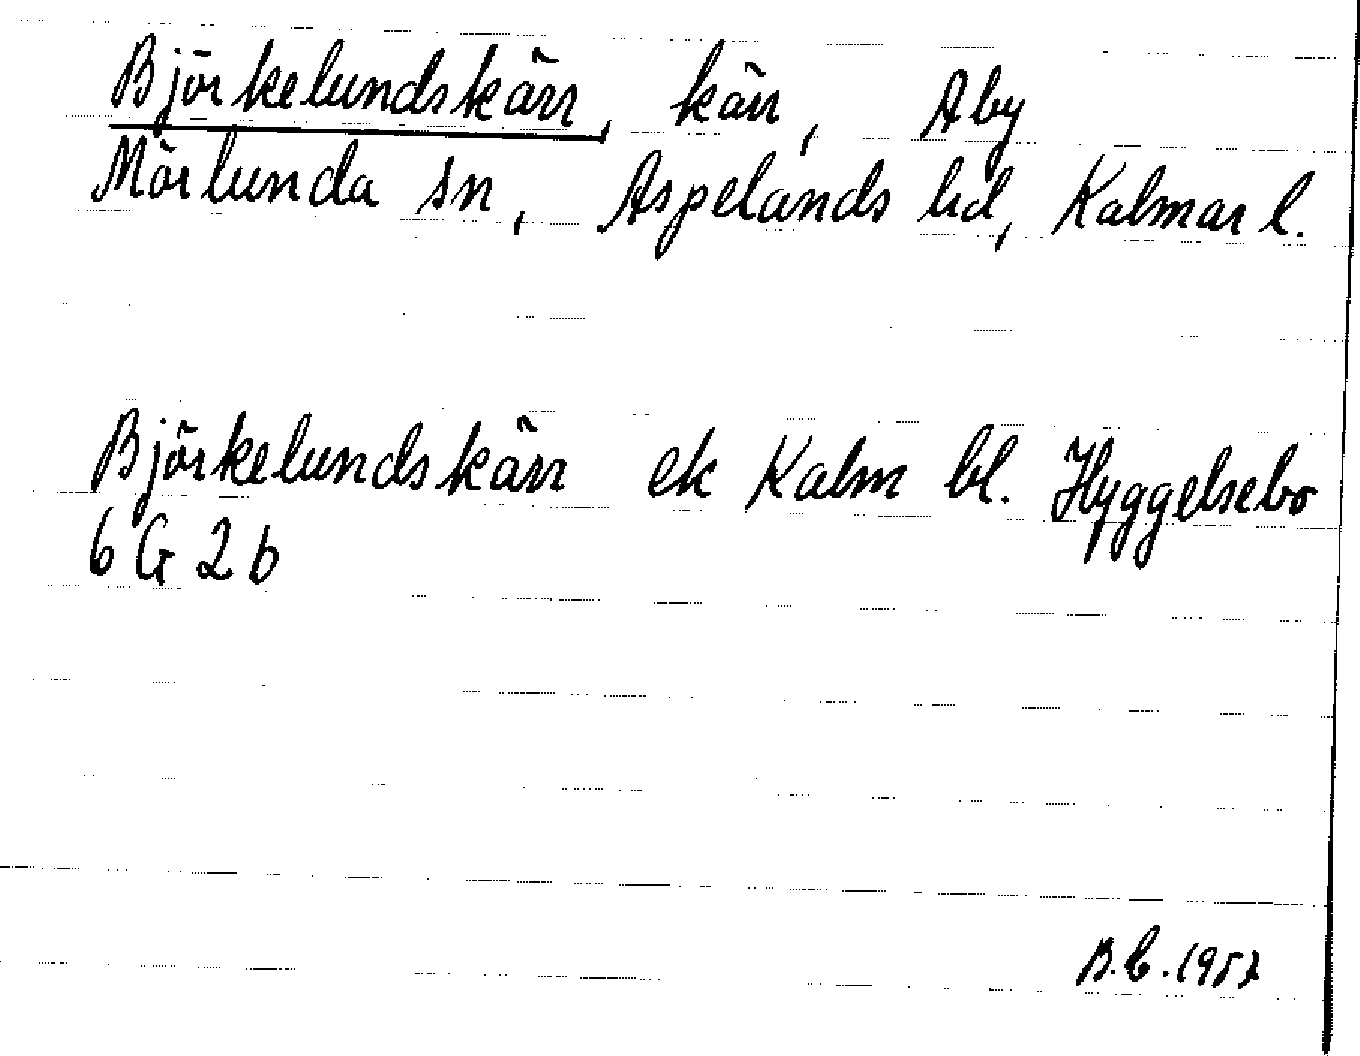 Björkelundskärr, kärr, Åby
Mörlunda sn, Aspelands hd, Kalmar l.
Björkelundskärr ek Kalm bl. Hyggelsebo
6 G 2 b
B.C. 1957